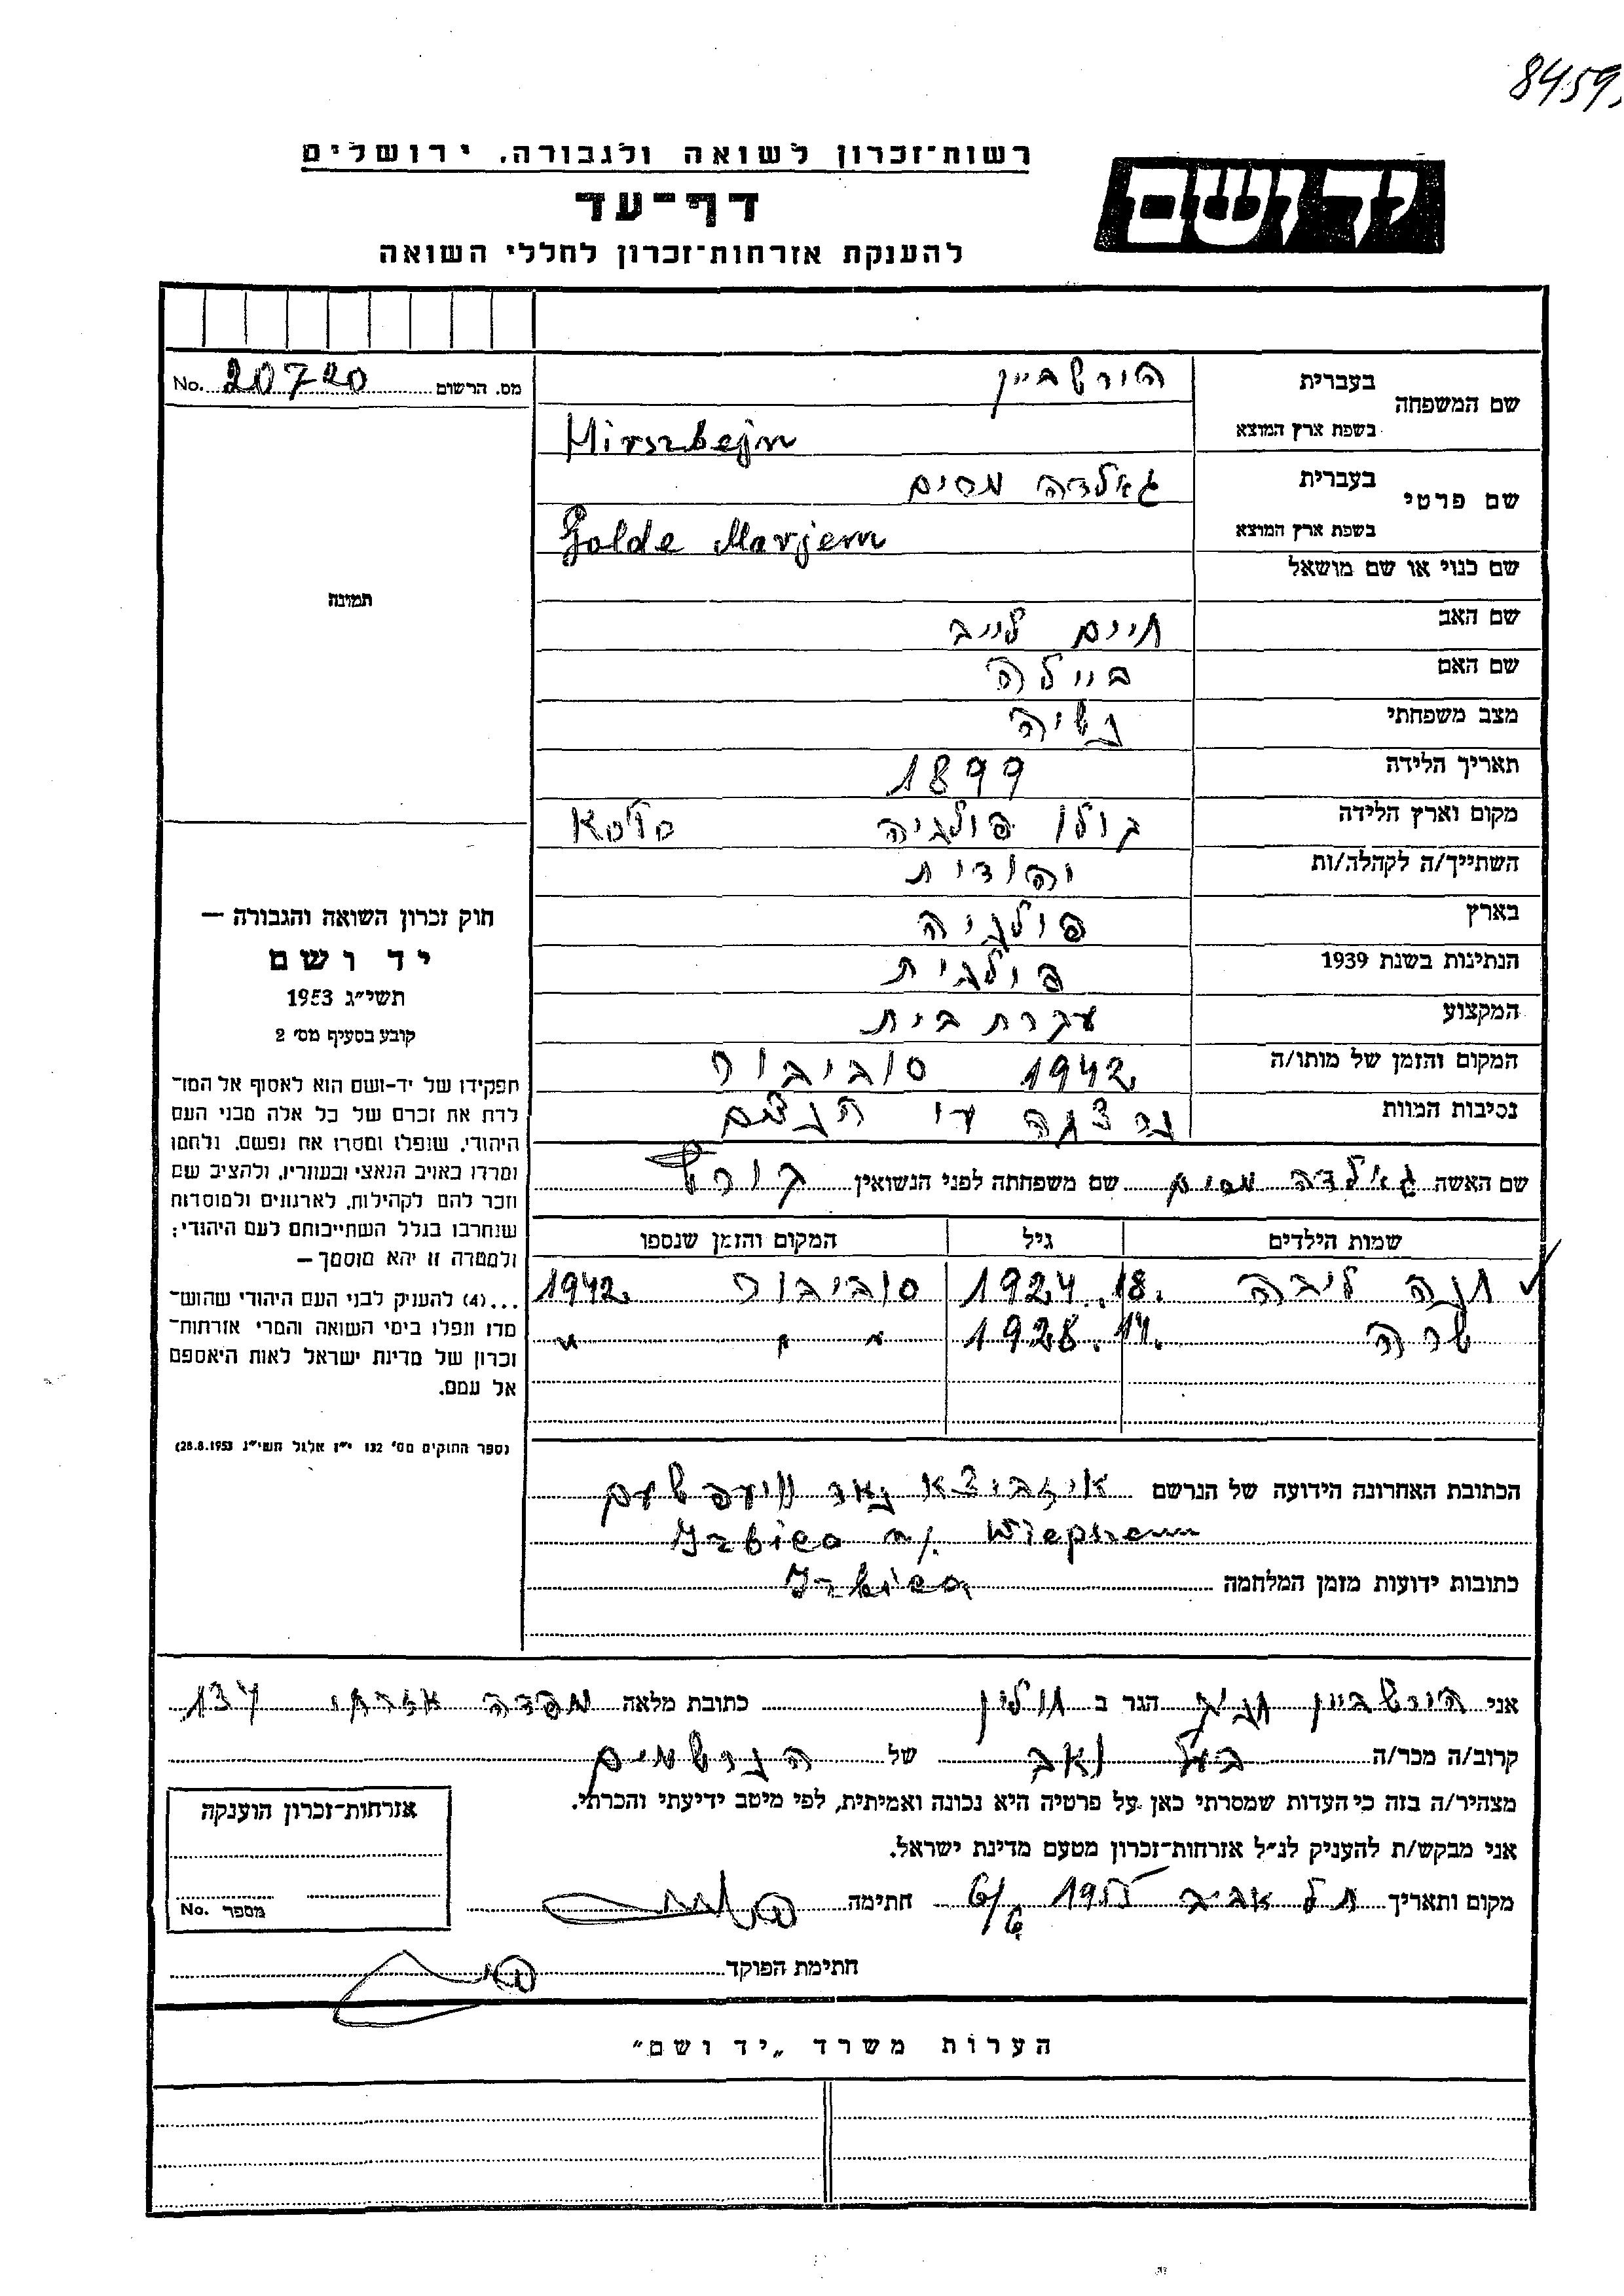 8459
רשות־זכרון לשואה ולגבורה. ירושלים
יד ושם
דף־עד
להענקת אזרחות־זכרון לחללי השואה
שם המשפחה
בעברית הירשביין
בשפת ארץ המוצא Hirszbejn
מס. הרשום 20720 No.
שם פרטי
בעברית גאלדה מרים
בשפת ארץ המוצא Golde Marjem
שם כנוי או שם מושאל
תמונה
שם האב חיים לייב
שם האם ביילה
מצב משפחתי נשיה
תאריך הלידה 1899
מקום וארץ הלידה קולו פולניה Koło
השתייך/ה לקהלה/ות יהודית
בארץ פולניה
הנתינות בשנת 1939 פולנית
המקצוע עקרת בית
המקום והזמן של מותו/ה 1942 סוביבור
נסיבות המוות נרצחה
שם האשה גאלדה מרים שם משפחתה לפני הנשואין
שמות הילדים גיל המקום והזמן שנספו
חנה ליבה 18. 1924 סוביבור 1942
שרה 14. 1928 " " "
הכתובת האחרונה הידועה של הנרשם איזביצא נאד וויעפשעם
Izbica n/. Wieprzem
כתובות ידועות מזמן המלחמה Izbica
חוק זכרון השואה והגבורה —
יד ושם
תשי״ג 1953
קובע בסעיף מס׳ 2
תפקידו של יד-ושם הוא לאסוף אל המו־
לדת את זכרם של כל אלה מבני העם
היהודי, שנפלו ומסרו את נפשם, נלחמו
ומרדו באויב הנאצי ובעוזריו, ולהציב שם
וזכר להם לקהילות, לארגונים ולמוסדות
שנחרבו בגלל השתייכותם לעם היהודי;
ולמטרה זו יהא מוסמך —
...(4) להעניק לבני העם היהודי שהוש־
מדו ונפלו בימי השואה והמרי אזרחות־
זכרון של מדינת ישראל לאות היאספם
אל עמם.
(ספר החוקים מס׳ 132 י״ז אלול תשי״ג 28.8.1953)
אני הירשביין הגר ב חולון כתובת מלאה אזרחי 134
קרוב/ה מכר/ה בעל ואב של הנרשמים
מצהיר/ה בזה כי העדות שמסרתי כאן על פרטיה היא נכונה ואמיתית, לפי מיטב ידיעתי והכרתי.
אני מבקש/ת להעניק לנ״ל אזרחות־זכרון מטעם מדינת ישראל.
מקום ותאריך תל אביב 1955 6/6 חתימה
חתימת הפוקד
אזרחות־זכרון הוענקה
מספר No.
הערות משרד „יד ושם״